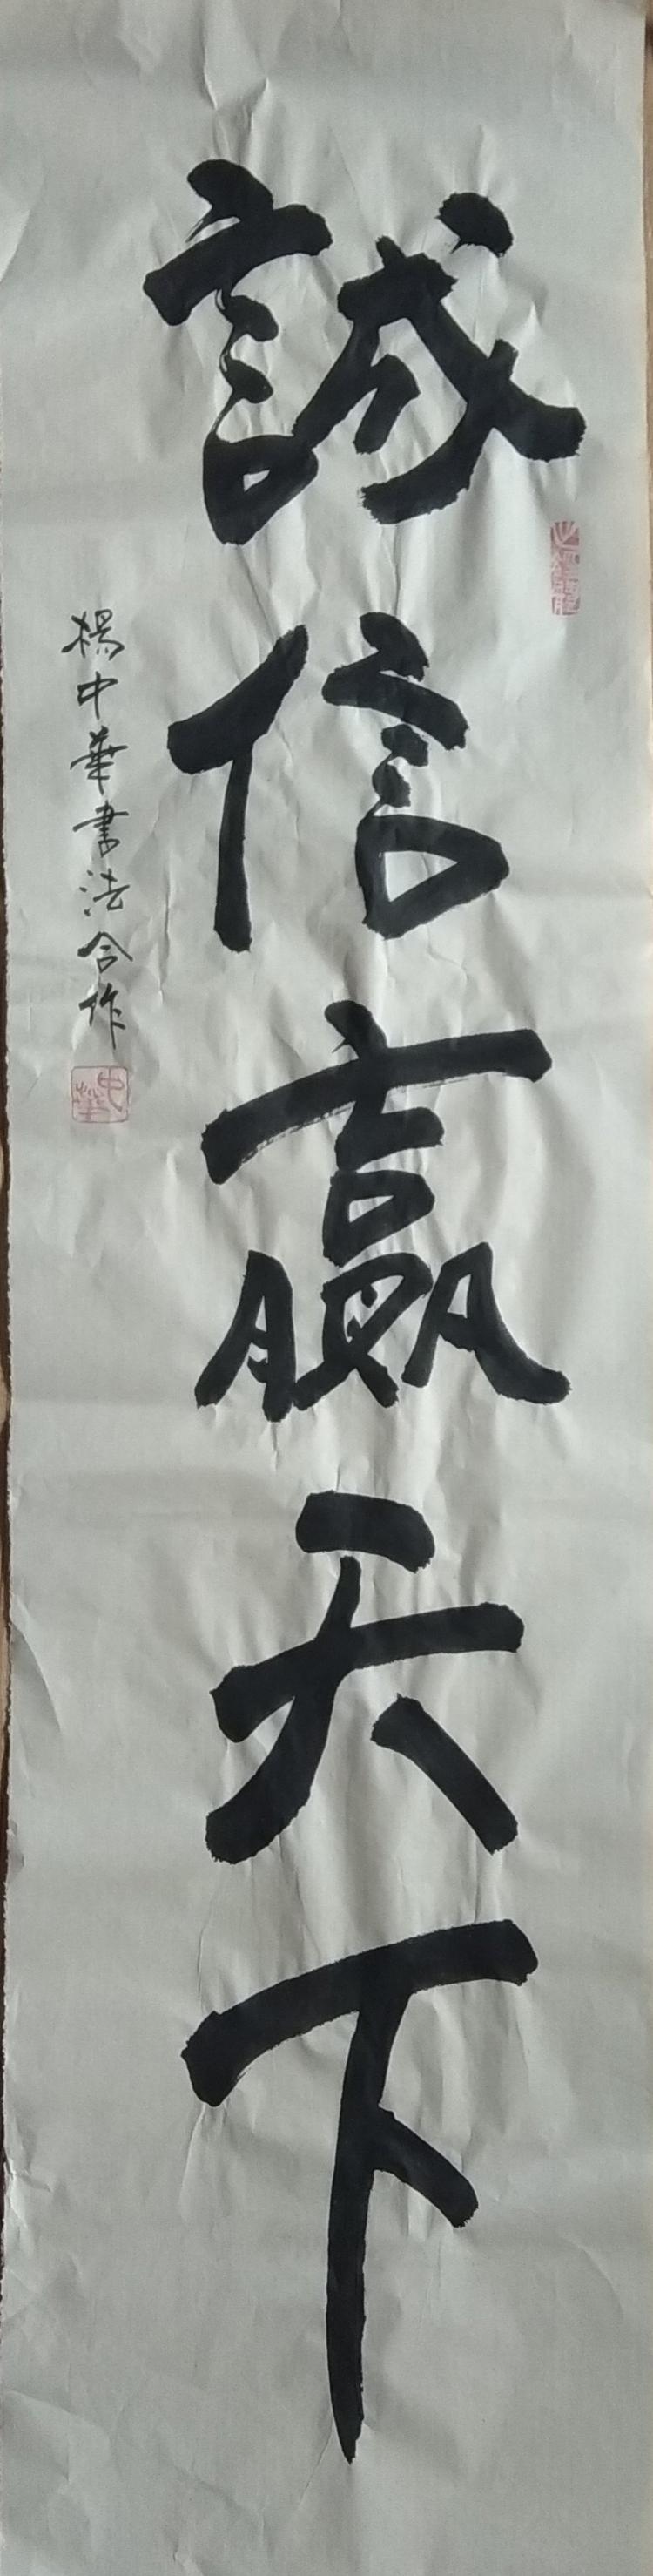 誠信贏天下
楊中華書法合作